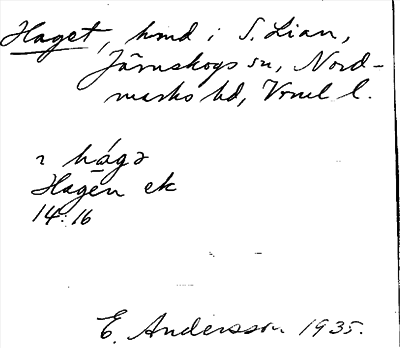 Haget, hmd i S. Lian,
Järnskogs sn, Nord-
marks hd, Vrml l.
hágə
Hagen ek
14:16
E. Andersson 1935.